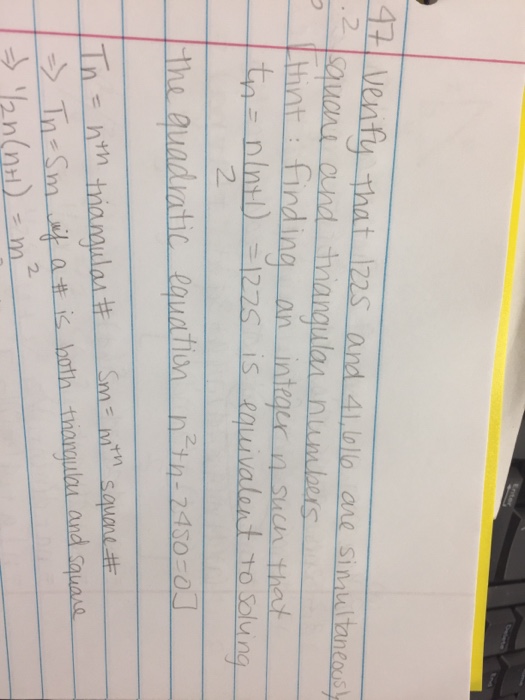 47 Verify that 1225 and 41,616 are simultaneously
.2 square and triangular numbers
[Hint: finding an integer n such that
tn = n(n+1)/2 = 1225 is equivalent to solving
the quadratic equation n²+n-2450=0]
Tn = nth triangular # Sm = mth square #
⇒ Tn = Sm if a # is both triangular and square
⇒ 1/2n(n+1) = m²